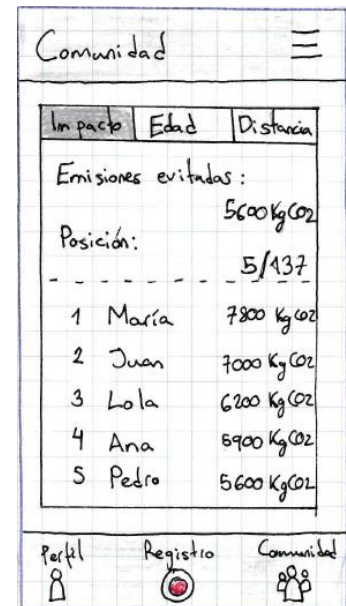 Comunidad
Impacto Edad Distancia
Emisiones evitadas:
5600 KgCO2
Posición:
5/137
1 María 7800 KgCO2
2 Juan 7000 KgCO2
3 Lola 6200 KgCO2
4 Ana 5900 KgCO2
5 Pedro 5600 KgCO2
Perfil Registro Comunidad